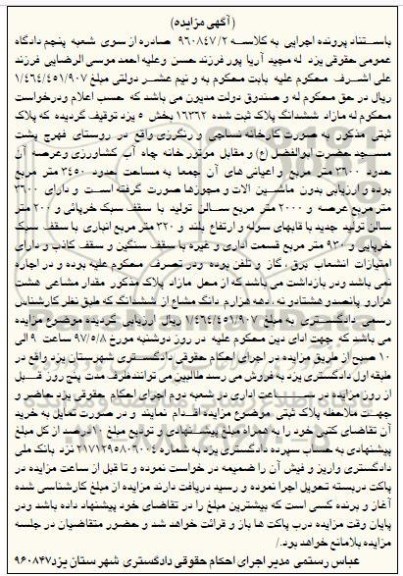 (آگهی مزایده)
باستناد پرونده اجرایی به کلاسه ۹۶۰۸۴۷/۲ صادره از سوی شعبه پنجم دادگاه
عمومی حقوقی یزد له مجید آریا پور فرزند حسن وعلیه احمد موسی الرضایی فرزند
علی اشرف محکوم علیه بابت محکوم به و نیم عشر دولتی مبلغ ۱/۴۶۴/۴۵۱/۹۰۷
ریال در حق محکوم له و صندوق دولت مدیون می باشد که حسب اعلام ودرخواست
محکوم له مازاد ششدانگ پلاک ثبت شده ۱۶۳۶۲ بخش ۵ یزد توقیف گردیده که پلاک
ثبتی مذکور به صورت کارخانه نساجی و رنگرزی واقع در روستای فهرج پشت
مسجد حضرت ابوالفضل (ع) و مقابل موتور خانه چاه آب کشاورزی وعرصه آن
حدود ۳۶۰۰ متر مربع و اعیانی های آن جمعا به مساحت حدود ۳۴۵۰ متر مربع
بوده و ارزیابی بدون ماشین الات و مجوزها صورت گرفته است و دارای ۳۶۰۰
متر مربع عرصه و ۲۰۰۰ متر مربع سالن تولید با سقف سبک خرپائی و ۲۰۰ متر
سالن تولید جدید با قابهای سوله و ارتفاع بلند و ۳۲۰ متر مربع انباری با سقف سبک
خرپایی و ۹۳۰ متر مربع قسمت اداری و غیره با سقف سنگین و سقف کاذب و دارای
امتیازات انشعاب برق، گاز و تلفن بوده ودر تصرف محکوم علیه بوده و در اجاره
نمی باشد ودر بازداشت می باشد که از محل مازاد پلاک مذکور مقدار مشاعی هشت
هزار و پانصدو هشتادو نه دهه هزارم دانگ مشاع از ششدانگ که طبق نظر کارشناس
رسمی دادگستری به مبلغ ۱/۴۶۴/۴۵۱/۹۰۷ ریال ارزیابی گردیده موضوع مزایده
می باشد که جهت ادای دین محکوم علیه در روز دوشنبه مورخ ۹۷/۵/۸ ساعت ۹ الی
۱۰ صبح از طریق مزایده در اجرای احکام حقوقی دادگستری شهرستان یزد واقع در
طبقه اول دادگستری یزد به فروش می رسد طالبین می توانند ظرف مدت پنج روز قبل
از روز مزایده در ساعت اداری در شعبه دوم اجرای احکام حقوقی یزد حاضر و
جهت ملاحظه پلاک ثبتی موضوع مزایده اقدام نمایند و در صورت تمایل به خرید
آن تقاضای کتبی خود را به همراه مبلغ پیشنهادی و تودیع مبلغ ۱۰ درصد از کل مبلغ
پیشنهادی به حساب سپرده دادگستری یزد به شماره نزد بانک ملی
دادگستری واریز و فیش آن را ضمیمه در خواست نموده و تا قبل از ساعت مزایده در
پاکت دربسته تحویل اجرا نموده و رسید دریافت دارند مزایده از مبلغ کارشناسی شده
آغاز و برنده کسی است که بیشترین مبلغ را در تقاضای خود پیشنهاد داده باشد ودر
پایان وقت مزایده درب پاکت ها باز و قرائت خواهد شد و حضور متقاضیان در جلسه
مزایده بلامانع خواهد بود./
عباس رستمی مدیر اجرای احکام حقوقی دادگستری شهرستان یزد ۹۶۰۸۴۷
ParsNamadData
۰۲۱-۸۸۳۴۹۶۷۰-۵